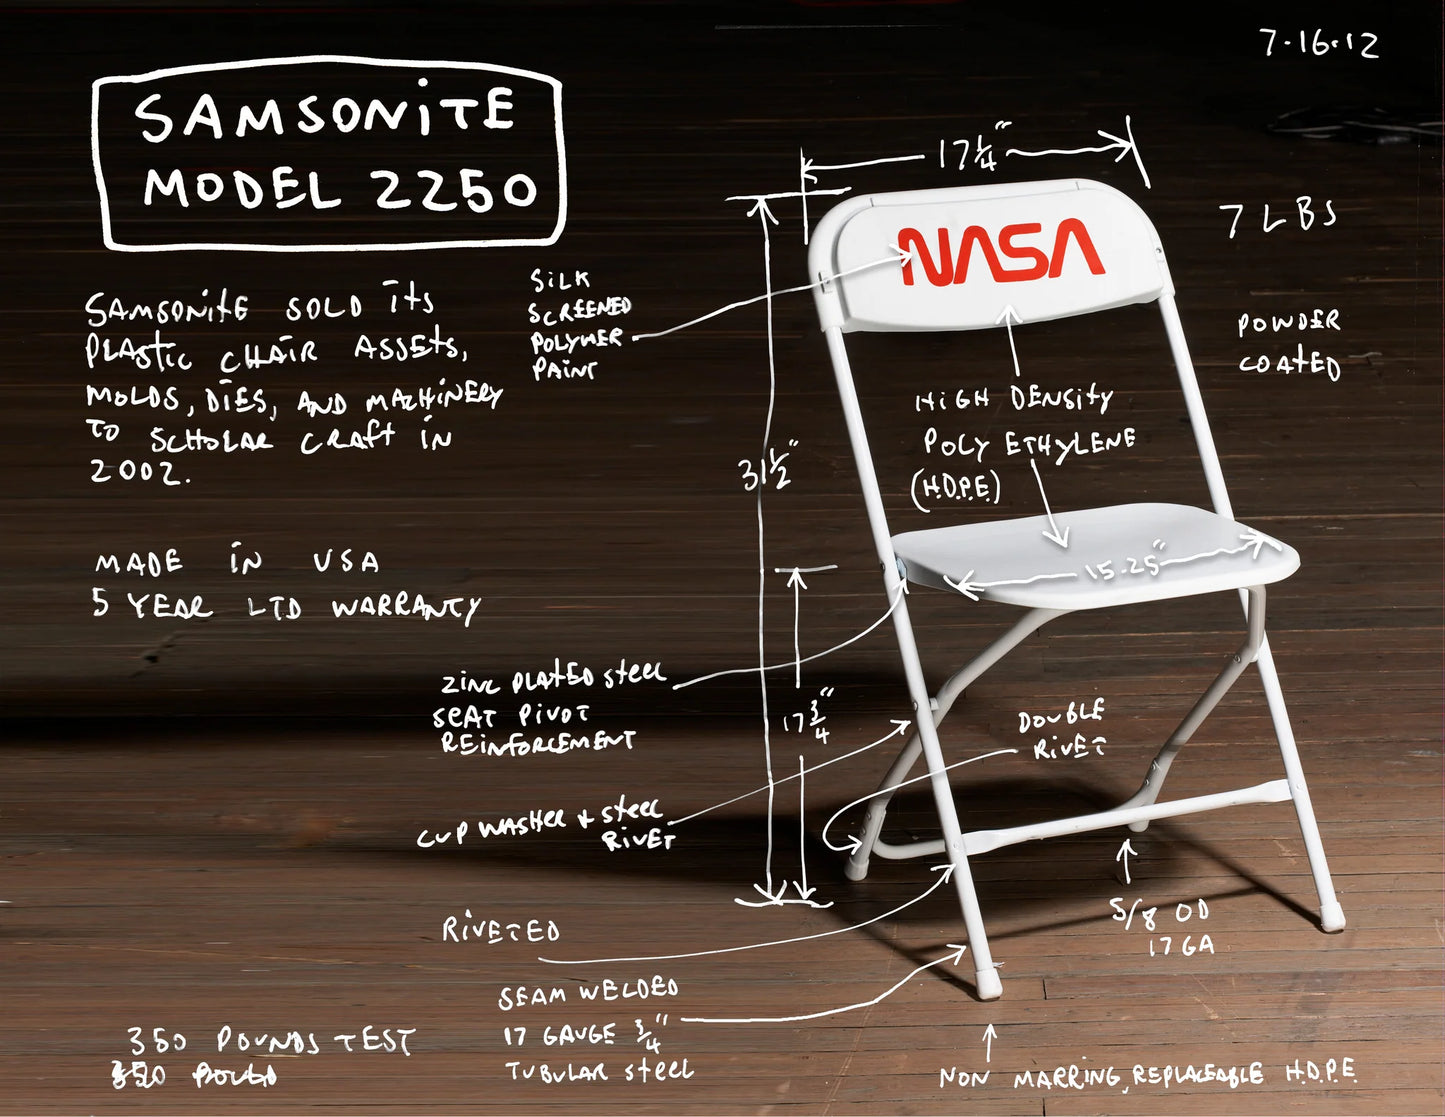 7·16·12
SAMSONiTE
MODEL 2250
17 1/4"
7 LBS
NASA
SAMSONitE SOLD its
PLAStic CHAIR ASSETS,
MOLDS, DIES, AND MACHINERY
TO SCHOLAR CRAft iN
2002.
SiLK
SCREENED
POLYMER
PAiNT
POWDER
COAtED
HiGH DENSity
POLY EtHYLENE
(H.D.P.E.)
31 1/2"
15.25"
MADE iN USA
5 YEAR LTD WARRANTY
ZiNC PLAtED SteeL
SEAT PiVOT
REiNFORCEMENT
17 3/4"
DOUBLE
RiVET
CUP WASHER + SteeL
RiVET
RiVETED
5/8 OD
17 GA
SEAM WELDED
17 GAUGE 3/4"
TUBULAR SteeL
350 POUNDS TEST
NON MARRING, REPLACEABLE H.D.P.E.